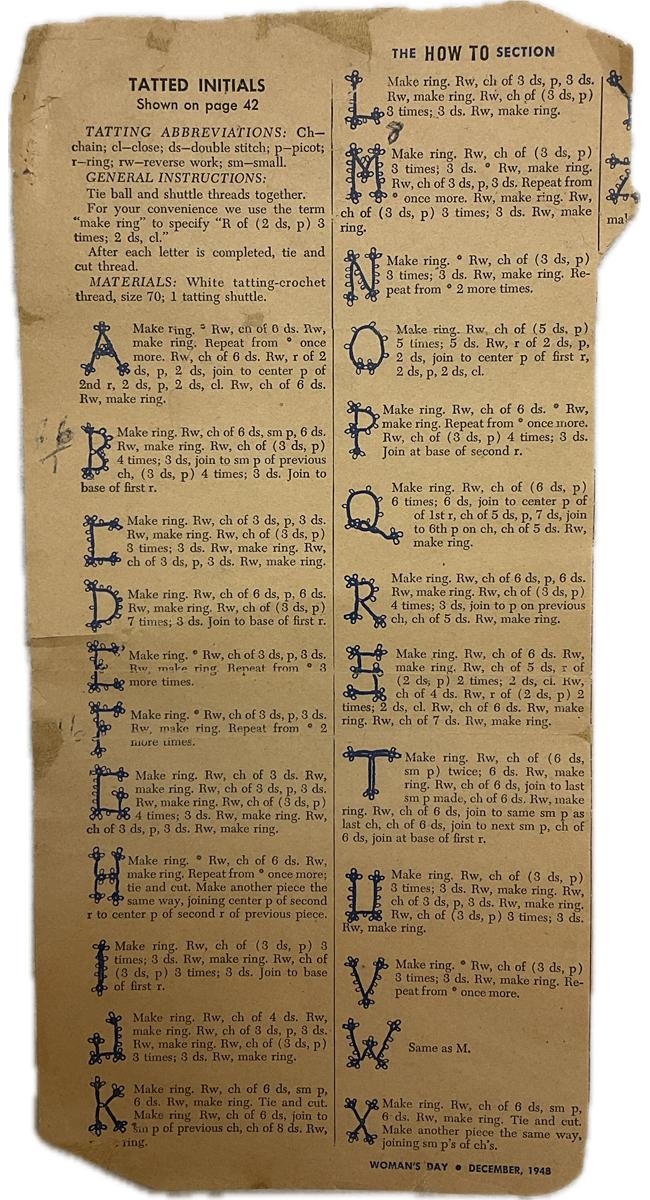 THE HOW TO SECTION
TATTED INITIALS
Shown on page 42
TATTING ABBREVIATIONS: Ch—
chain; cl—close; ds—double stitch; p—picot;
r—ring; rw—reverse work; sm—small.
GENERAL INSTRUCTIONS:
Tie ball and shuttle threads together.
For your convenience we use the term
"make ring" to specify "R of (2 ds, p) 3
times; 2 ds, cl."
After each letter is completed, tie and
cut thread.
MATERIALS: White tatting-crochet
thread, size 70; 1 tatting shuttle.
A Make ring. * Rw, ch of 6 ds. Rw,
make ring. Repeat from * once
more. Rw, ch of 6 ds. Rw, r of 2
ds, p, 2 ds, join to center p of
2nd r, 2 ds, p, 2 ds, cl. Rw, ch of 6 ds.
Rw, make ring.
B Make ring. Rw, ch of 6 ds, sm p, 6 ds.
Rw, make ring. Rw, ch of (3 ds, p)
4 times; 3 ds, join to sm p of previous
ch, (3 ds, p) 4 times; 3 ds. Join to
base of first r.
C Make ring. Rw, ch of 3 ds, p, 3 ds.
Rw, make ring. Rw, ch of (3 ds, p)
3 times; 3 ds. Rw, make ring. Rw,
ch of 3 ds, p, 3 ds. Rw, make ring.
D Make ring. Rw, ch of 6 ds, p, 6 ds.
Rw, make ring. Rw, ch of (3 ds, p)
7 times; 3 ds. Join to base of first r.
E Make ring. * Rw, ch of 3 ds, p, 3 ds.
Rw, make ring. Repeat from * 3
more times.
F Make ring. * Rw, ch of 3 ds, p, 3 ds.
Rw, make ring. Repeat from * 2
more times.
G Make ring. Rw, ch of 3 ds. Rw,
make ring. Rw, ch of 3 ds, p, 3 ds.
Rw, make ring. Rw, ch of (3 ds, p)
4 times; 3 ds. Rw, make ring. Rw,
ch of 3 ds, p, 3 ds. Rw, make ring.
H Make ring. * Rw, ch of 6 ds. Rw,
make ring. Repeat from * once more;
tie and cut. Make another piece the
same way, joining center p of second
r to center p of second r of previous piece.
I Make ring. Rw, ch of (3 ds, p) 3
times; 3 ds. Rw, make ring. Rw, ch of
(3 ds, p) 3 times; 3 ds. Join to base
of first r.
J Make ring. Rw, ch of 4 ds. Rw,
make ring. Rw, ch of 3 ds, p, 3 ds.
Rw, make ring. Rw, ch of (3 ds, p)
3 times; 3 ds. Rw, make ring.
K Make ring. Rw, ch of 6 ds, sm p,
6 ds. Rw, make ring. Tie and cut.
Make ring. Rw, ch of 6 ds, join to
sm p of previous ch, ch of 8 ds. Rw,
ring.
L Make ring. Rw, ch of 3 ds, p, 3 ds.
Rw, make ring. Rw, ch of (3 ds, p)
3 times; 3 ds. Rw, make ring.
M Make ring. Rw, ch of (3 ds, p)
3 times; 3 ds. * Rw, make ring.
Rw, ch of 3 ds, p, 3 ds. Repeat from
* once more. Rw, make ring. Rw,
ch of (3 ds, p) 3 times; 3 ds. Rw, make
ring.
N Make ring. * Rw, ch of (3 ds, p)
3 times; 3 ds. Rw, make ring. Re-
peat from * 2 more times.
O Make ring. Rw, ch of (5 ds, p)
5 times; 5 ds. Rw, r of 2 ds, p,
2 ds, join to center p of first r,
2 ds, p, 2 ds, cl.
P Make ring. Rw, ch of 6 ds. * Rw,
make ring. Repeat from * once more.
Rw, ch of (3 ds, p) 4 times; 3 ds.
Join at base of second r.
Q Make ring. Rw, ch of (6 ds, p)
6 times; 6 ds, join to center p of
of 1st r, ch of 5 ds, p, 7 ds, join
to 6th p on ch, ch of 5 ds. Rw,
make ring.
R Make ring. Rw, ch of 6 ds, p, 6 ds.
Rw, make ring. Rw, ch of (3 ds, p)
4 times; 3 ds, join to p on previous
ch, ch of 5 ds. Rw, make ring.
S Make ring. Rw, ch of 6 ds. Rw,
make ring. Rw, ch of 5 ds, r of
(2 ds, p) 2 times; 2 ds, cl. Rw,
ch of 4 ds. Rw, r of (2 ds, p) 2
times; 2 ds, cl. Rw, ch of 6 ds. Rw, make
ring. Rw, ch of 7 ds. Rw, make ring.
T Make ring. Rw, ch of (6 ds,
sm p) twice; 6 ds. Rw, make
ring. Rw, ch of 6 ds, join to last
sm p made, ch of 6 ds. Rw, make
ring. Rw, ch of 6 ds, join to same sm p as
last ch, ch of 6 ds, join to next sm p, ch of
6 ds, join at base of first r.
U Make ring. Rw, ch of (3 ds, p)
3 times; 3 ds. Rw, make ring. Rw,
ch of 3 ds, p, 3 ds. Rw, make ring.
Rw, ch of (3 ds, p) 3 times; 3 ds.
Rw, make ring.
V Make ring. * Rw, ch of (3 ds, p)
3 times; 3 ds. Rw, make ring. Re-
peat from * once more.
W Same as M.
X Make ring. Rw, ch of 6 ds, sm p,
6 ds. Rw, make ring. Tie and cut.
Make another piece the same way,
joining sm p's of ch's.
WOMAN'S DAY • DECEMBER, 1948